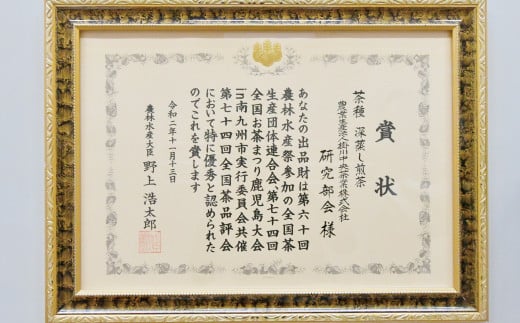 賞状
茶種 深蒸し煎茶
農業生産法人掛川中央茶業株式会社
研究部会 様
あなたの出品財は第六十回
農林水産祭参加の全国茶
生産団体連合会、第七十四回
全国お茶まつり鹿児島大会
IN南九州市実行委員会共催
第七十四回全国茶品評会
において特に優秀と認められた
のでこれを賞します
令和二年十一月十三日
農林水産大臣 野上 浩太郎